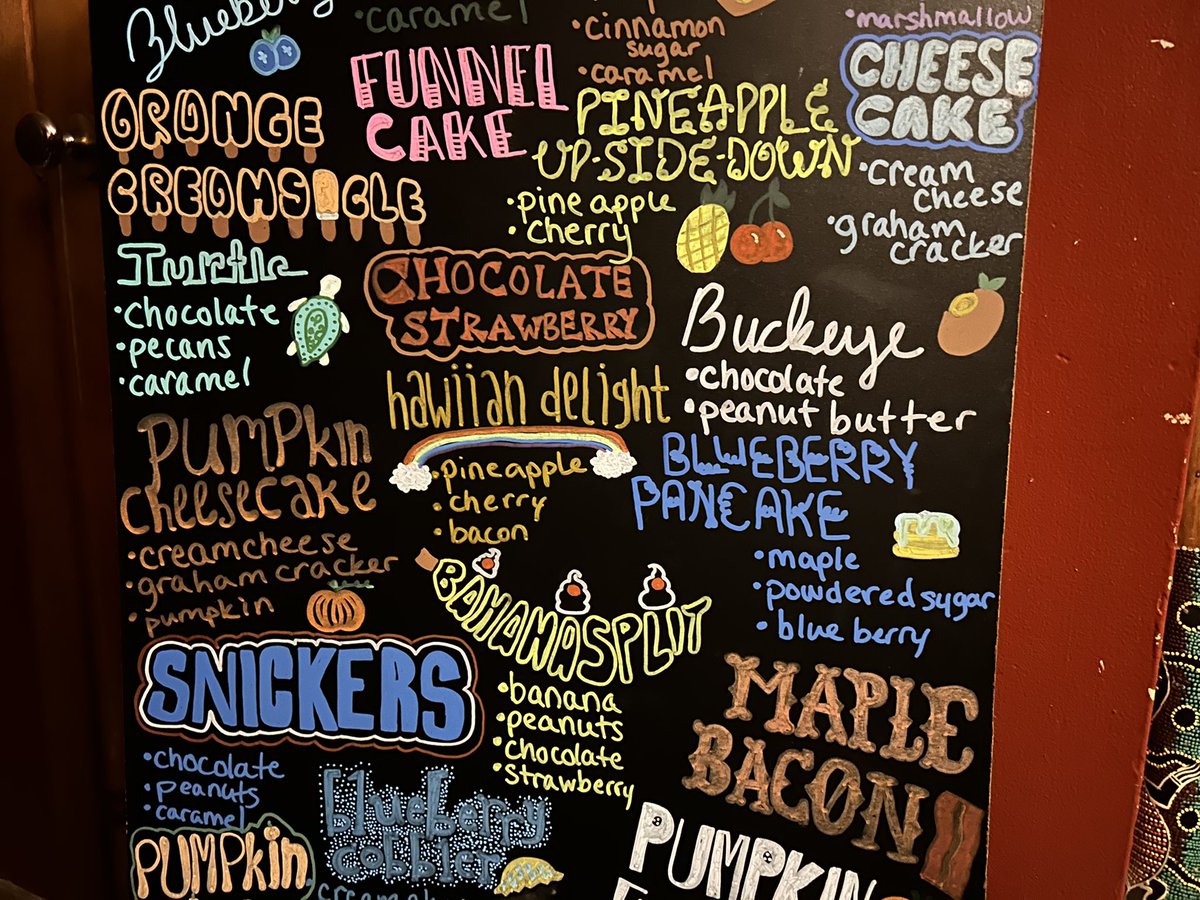 Blueberry
caramel
cinnamon
sugar
• caramel
• marshmallow
CHEESE
CAKE
• cream
cheese
• graham
cracker
FUNNEL
CAKE
ORANGE
CREAMSICLE
PINEAPPLE
UP-SIDE-DOWN
• pineapple
• cherry
Turtle
• chocolate
• pecans
• caramel
CHOCOLATE
STRAWBERRY
Buckeye
• chocolate
• peanut butter
hawiian delight
• pineapple
• cherry
• bacon
PUMPkin
cheesecake
• creamcheese
• graham cracker
• pumpkin
BLUEBERRY
PANCAKE
• maple
• powdered sugar
• blue berry
BANANA SPLIT
• banana
• peanuts
• chocolate
• strawberry
SNICKERS
• chocolate
• peanuts
• caramel
MAPLE
BACON
blueberry
cobbler
PUMPkin
PUMPKIN